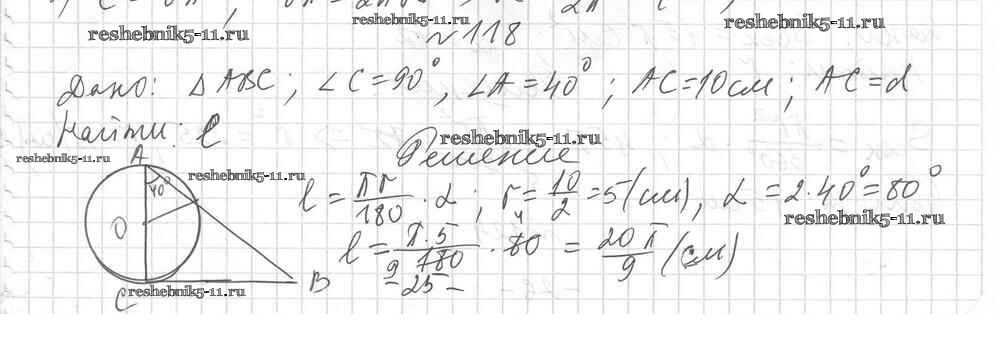 reshebnik5-11.ru reshebnik5-11.ru reshebnik5-11.ru
№118
Дано: △ABC; ∠C=90°, ∠A=40°; AC=10см; AC=d
Найти: l reshebnik5-11.ru
reshebnik5-11.ru A Решение
40° reshebnik5-11.ru l = πr/180 · α; r = 10/2 = 5(см), α = 2·40° = 80°
O reshebnik5-11.ru
l = π·5/180 · 80 = 20π/9 (см)
9 4
C reshebnik5-11.ru B -25-